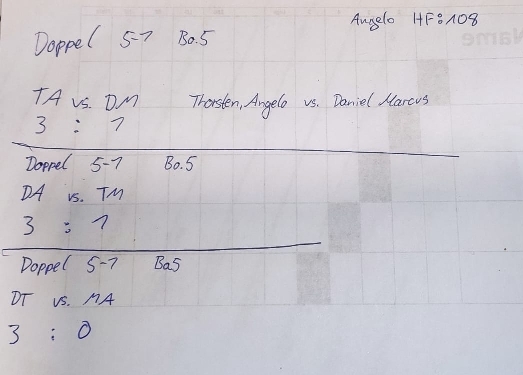 Angelo HF:108
Doppel 5-1 Bo.5
TA vs. DM Thorsten, Angelo vs. Daniel Marcus
3 : 1
Doppel 5-1 Bo.5
DA vs. TM
3 : 1
Doppel 5-1 Bo5
DT vs. MA
3 : 0